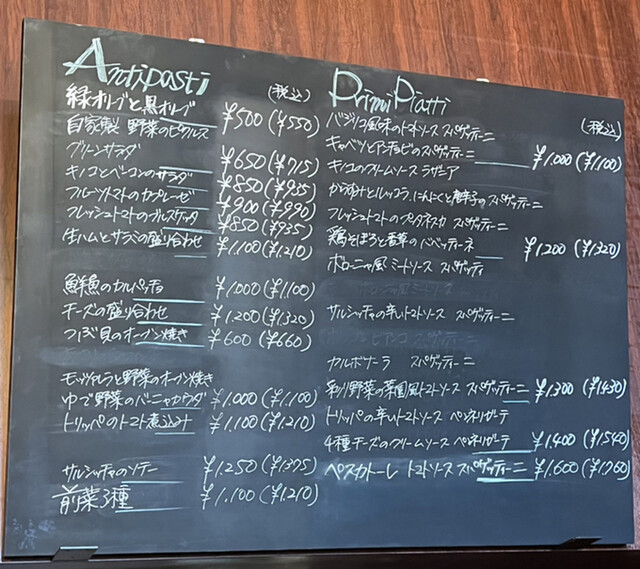 Antipasti
(税込)
緑オリーブと黒オリーブ
自家製 野菜のピクルス ¥500(¥550)
グリーンサラダ
キノコとベーコンのサラダ ¥650(¥715)
フルーツトマトのカプレーゼ ¥850(¥935)
フレッシュトマトのブルスケッタ ¥900(¥990)
¥850(¥935)
生ハムとサラミの盛り合わせ ¥1.100(¥1.210)
鮮魚のカルパッチョ ¥1000(¥1.100)
チーズの盛り合わせ ¥1.200(¥1.320)
つぶ貝のオーブン焼き ¥600(¥660)
モッツァレラと野菜のオーブン焼き
ゆで野菜のバーニャカウダ ¥1.000(¥1.100)
トリッパのトマト煮込み ¥1.100(¥1.210)
サルシッチャのソテー ¥1.250(¥1375)
前菜3種 ¥1.100(¥1.210)
Primi Piatti
(税込)
バジリコ風味のトマトソース スパゲッティーニ
キャベツとアンチョビのスパゲッティーニ ¥1.000(¥1.100)
キノコのクリームソース ラザニア
からすみとルッコラ、にんにくと唐辛子の スパゲッティーニ
フレッシュトマトのプッタネスカ スパゲッティーニ
鶏そぼろと青草のババッティーネ ¥1.200(¥1.320)
ボローニャ風 ミートソース スパゲッティ
サルシッチャの辛いトマトソース スパゲッティーニ
カルボナーラ スパゲッティーニ
彩り野菜の菜園風トマトソース スパゲッティーニ ¥1.300(¥1.430)
トリッパの辛いトマトソース ペンネリガーテ
4種チーズのクリームソース ペンネリガーテ ¥1.400(¥1.540)
ペスカトーレ トマトソース スパゲッティーニ ¥1.600(¥1.760)